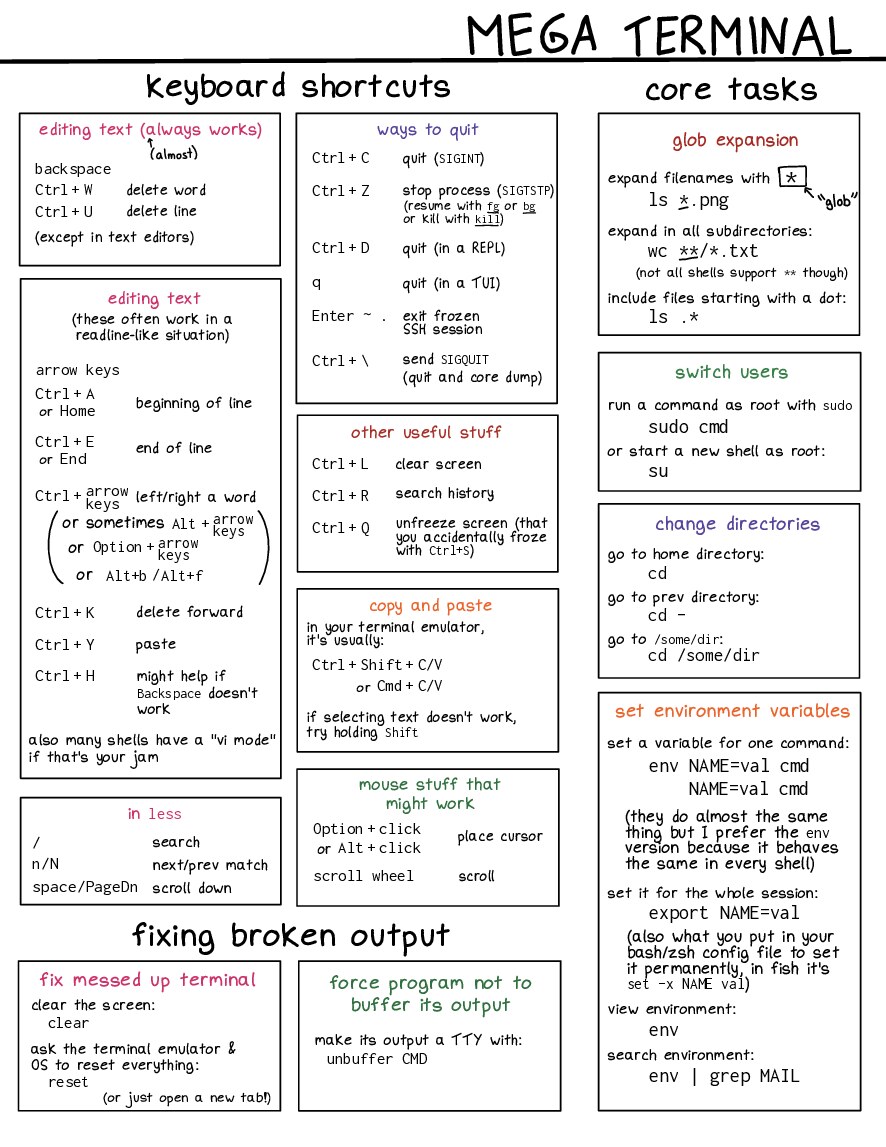 MEGA TERMINAL
keyboard shortcuts
editing text (always works)
(almost)
backspace
Ctrl + W delete word
Ctrl + U delete line
(except in text editors)
editing text
(these often work in a
readline-like situation)
arrow keys
Ctrl + A
or Home
beginning of line
Ctrl + E
or End
end of line
Ctrl + arrow keys left/right a word
(or sometimes Alt + arrow keys
or Option + arrow keys
or Alt+b /Alt+f)
Ctrl + K delete forward
Ctrl + Y paste
Ctrl + H might help if
Backspace doesn't
work
also many shells have a "vi mode"
if that's your jam
in less
/ search
n/N next/prev match
space/PageDn scroll down
ways to quit
Ctrl + C quit (SIGINT)
Ctrl + Z stop process (SIGTSTP)
(resume with fg or bg
or kill with kill)
Ctrl + D quit (in a REPL)
q quit (in a TUI)
Enter ~ . exit frozen
SSH session
Ctrl + \ send SIGQUIT
(quit and core dump)
other useful stuff
Ctrl + L clear screen
Ctrl + R search history
Ctrl + Q unfreeze screen (that
you accidentally froze
with Ctrl+S)
copy and paste
in your terminal emulator,
it's usually:
Ctrl + Shift + C/V
or Cmd + C/V
if selecting text doesn't work,
try holding Shift
mouse stuff that
might work
Option + click
or Alt + click
place cursor
scroll wheel scroll
fixing broken output
fix messed up terminal
clear the screen:
clear
ask the terminal emulator &
OS to reset everything:
reset
(or just open a new tab!)
force program not to
buffer its output
make its output a TTY with:
unbuffer CMD
core tasks
glob expansion
expand filenames with *
"glob"
ls *.png
expand in all subdirectories:
wc **/*.txt
(not all shells support ** though)
include files starting with a dot:
ls .*
switch users
run a command as root with sudo
sudo cmd
or start a new shell as root:
su
change directories
go to home directory:
cd
go to prev directory:
cd -
go to /some/dir:
cd /some/dir
set environment variables
set a variable for one command:
env NAME=val cmd
NAME=val cmd
(they do almost the same
thing but I prefer the env
version because it behaves
the same in every shell)
set it for the whole session:
export NAME=val
(also what you put in your
bash/zsh config file to set
it permanently, in fish it's
set -x NAME val)
view environment:
env
search environment:
env | grep MAIL